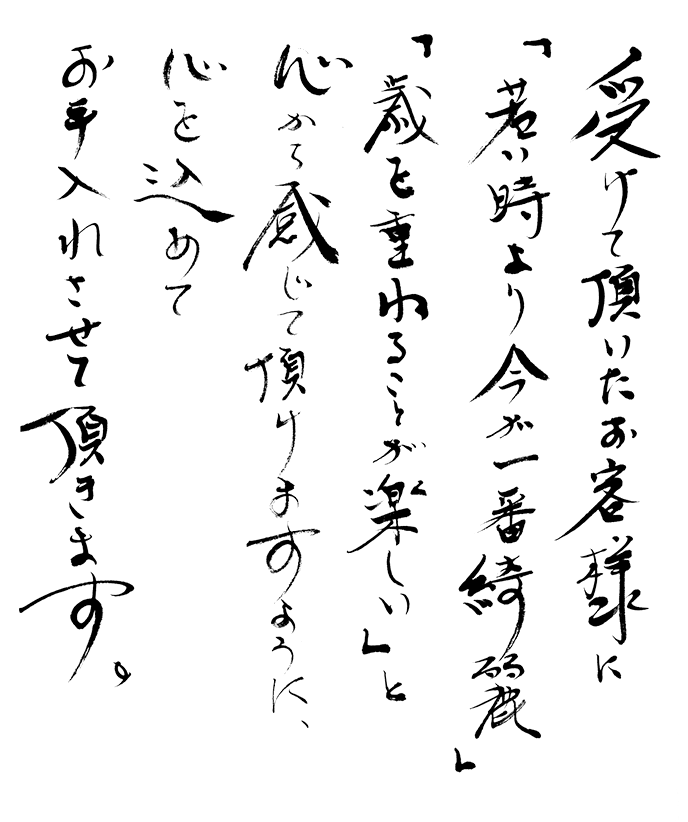 受けて頂いたお客様に
「若い時より今が一番綺麗」
「歳を重ねることが楽しい」と
心から感じて頂けますように、
心を込めて
お手入れさせて頂きます。